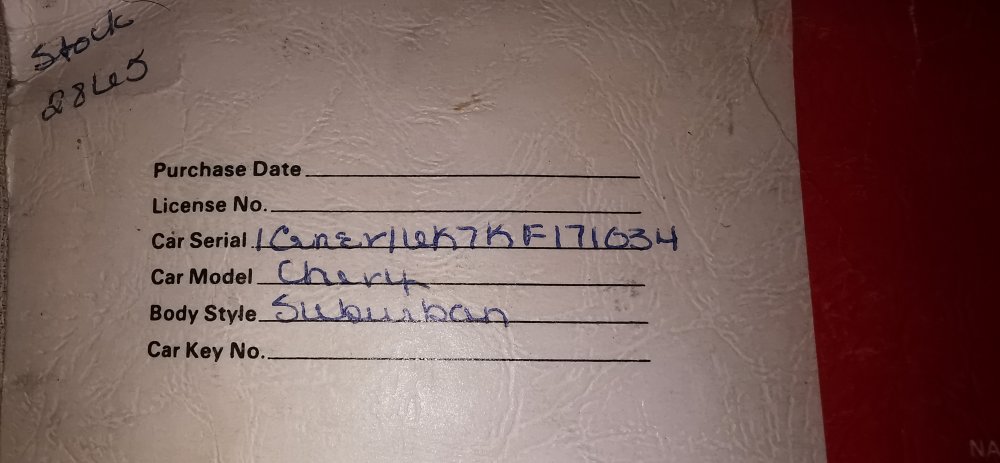 Stock
2865
Purchase Date
License No.
Car Serial 1GnEr16K7KF171634
Car Model Chevy
Body Style Suburban
Car Key No.
NA